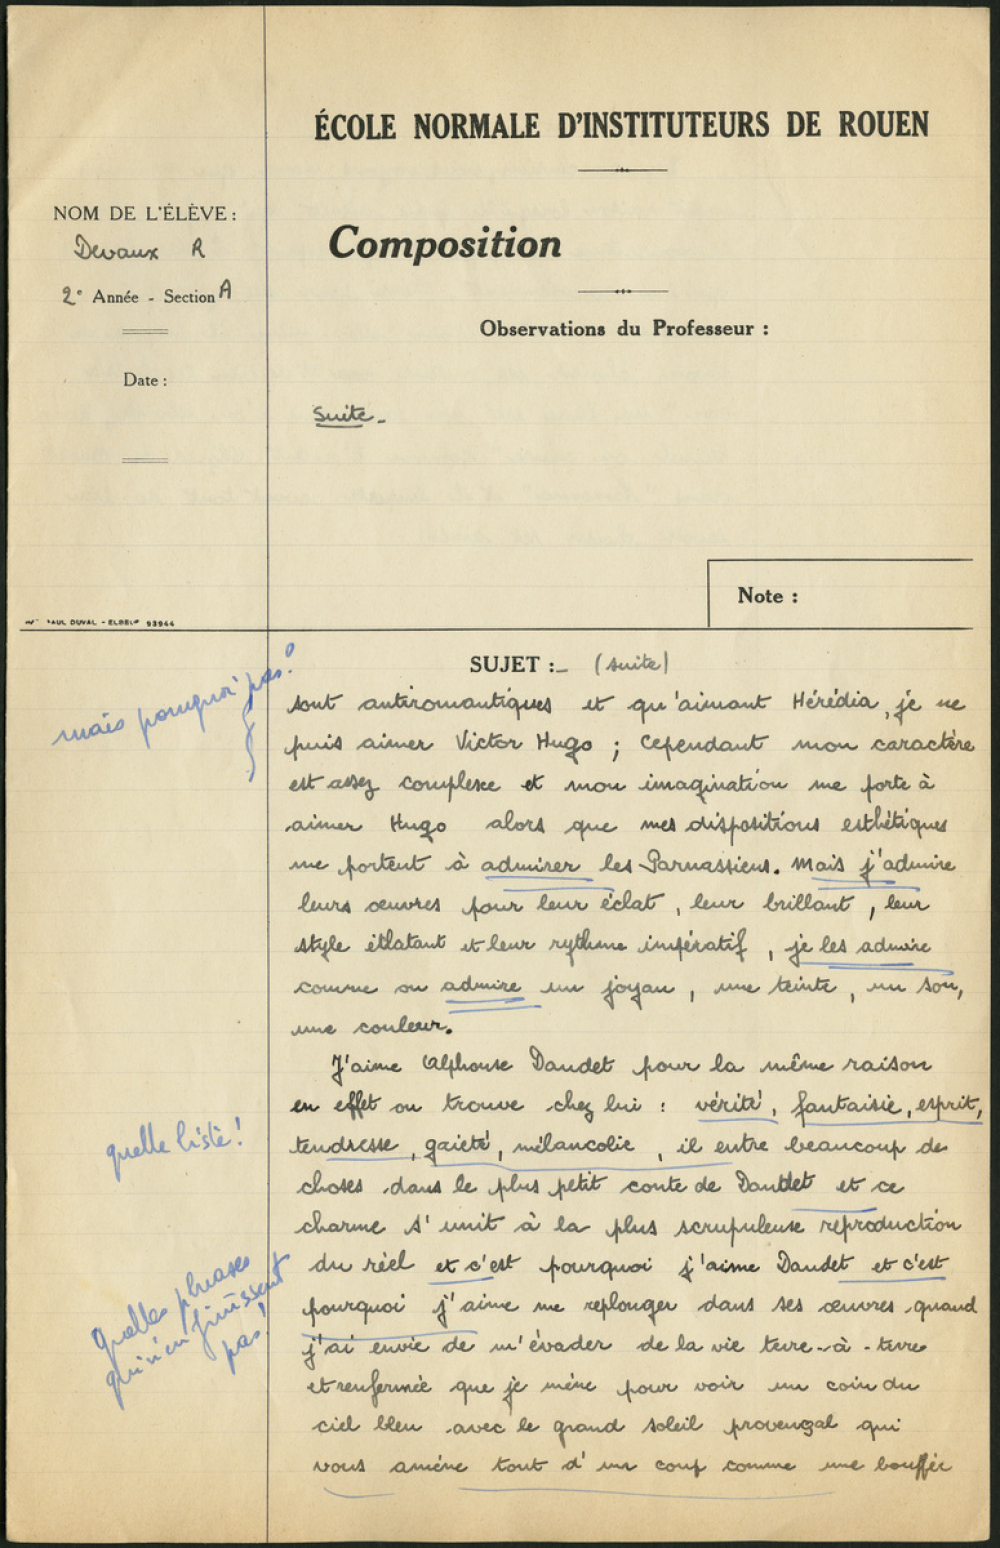 ÉCOLE NORMALE D'INSTITUTEURS DE ROUEN
NOM DE L'ÉLÈVE :
Devaux R
2e Année - Section A
Date :
Composition
Observations du Professeur :
Suite -
Note :
PAUL DUVAL - ELBEUF 93944
SUJET :- (suite)
mais pourquoi pas?
sont antiromantiques et qu'aimant Hérédia, je ne
puis aimer Victor Hugo ; Cependant mon caractère
est assez complexe et mon imagination me porte à
aimer Hugo alors que mes dispositions esthétiques
me portent à admirer les Parnassiens. Mais j'admire
leurs œuvres pour leur éclat, leur brillant, leur
style éclatant et leur rythme impératif, je les admire
comme on admire un joyau, une teinte, un son,
une couleur.
J'aime Alphonse Daudet pour la même raison
en effet on trouve chez lui : vérité, fantaisie, esprit,
quelle liste!
tendresse, gaieté, mélancolie, il entre beaucoup de
choses dans le plus petit conte de Daudet et ce
charme s'unit à la plus scrupuleuse reproduction
du réel et c'est pourquoi j'aime Daudet et c'est
Quelles phrases
qui n'en finissent
pas!
pourquoi j'aime me replonger dans ses œuvres quand
j'ai envie de m'évader de la vie terre-à-terre
et renfermée que je mène pour voir un coin du
ciel bleu avec le grand soleil provençal qui
vous amène tout d'un coup comme une bouffée